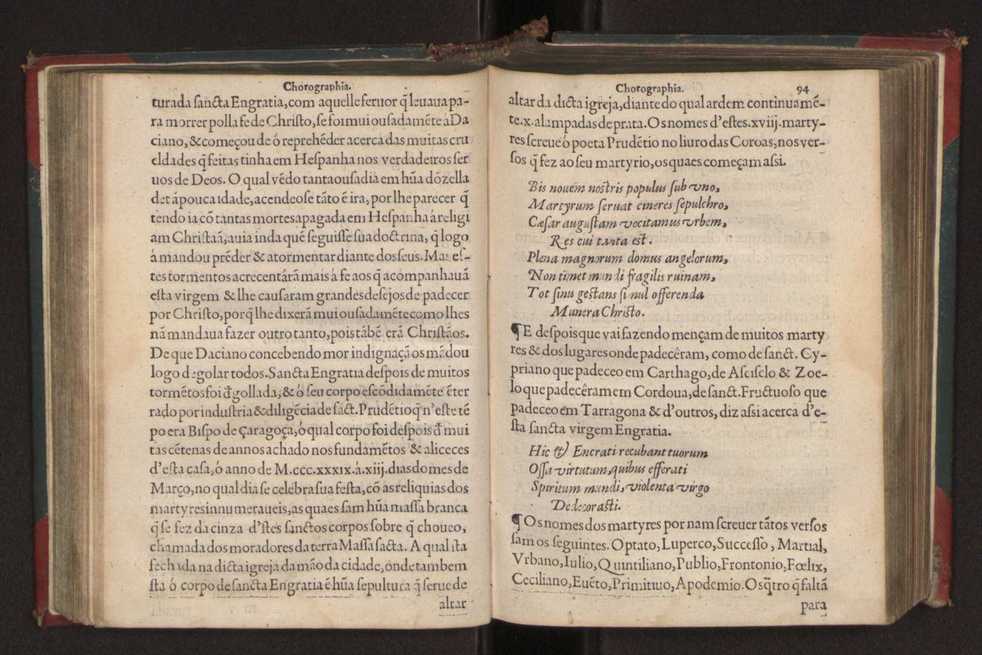 Chorographia.
turada sancta Engratia, com aquelle feruor q̃ leuaua pa-
ra morrer polla fe de Christo, se foi mui ousadamẽte a Da
ciano, & começou de ó reprehẽder acerca das muitas cru
eldades q̃ feitas tinha em Hespanha nos verdadeiros ser
uos de Deos. O qual vẽdo tanta ousadia em hũa dõzella
de tã pouca idade, acendeose tãto ẽ ira, por lhe parecer q̃
tendo ia cõ tantas mortes apagada em Hespanha à religi
am Christaã, auia inda quẽ seguisse sua doctrina, q̃ logo
á mandou prẽder & atormentar diante dos seus. Mas es-
tes tormentos acrecentárã mais á fe aos q̃ acompanhauã
esta virgem & lhe causaram grandes desejos de padecer
por Christo, porq̃ lhe dixerã mui ousadamẽte como lhes
nã mandaua fazer outro tanto, pois tãbẽ erã Christãos.
De que Daciano concebendo mor indignaçã os mãdou
logo degolar todos. Sancta Engratia despois de muitos
tormẽtos foi d̃gollada, & ó seu corpo escõdidamẽte ẽter
rado por industria & diligẽcia de sãct. Prudẽtio q̃ n'este tẽ
po era Bispo de Çaragoça, ó qual corpo foi despois d̃ mui
tas cẽtenas de annos achado nos fundamẽtos & aliceces
d'esta casa, ó anno de M.ccc.xxxix. à .xiij. dias do mes de
Março, no qual dia se celebra sua festa, cõ as reliquias dos
martyres innumeraueis, as quaes sam hũa massa branca
q̃ se fez da cinza d'stes sanctos corpos sobre q̃ choueo,
chamada dos moradores da terra Massa sãcta. A qual sta
fechada na dicta igreja da mão da cidade, onde tambem
sta ó corpo de sancta Engratia ẽ hũa sepultura q̃ serue de
altar
Chorographia. 94
altar da dicta igreja, diante do qual ardem continuamẽ-
te .x. alampadas de prata. Os nomes d'estes .xviij. marty-
res screue ó poeta Prudẽtio no liuro das Coroas, nos ver-
sos q̃ fez ao seu martyrio, os quaes começam assi.
Bis nouem nostris populus sub vno,
Martyrum seruat cineres sepulchro,
Cæsar augustam vocitamus vrbem,
Res cui tanta est.
Plena magnorum domus angelorum,
Non timet mundi fragilis ruinam,
Tot sinu gestans simul offerenda
Munera Christo.
¶ E despois que vai fazendo mençam de muitos marty
res & dos lugares onde padecêram, como de sanct. Cy-
priano que padeceo em Carthago, de Ascisclo & Zoe-
lo que padecêram em Cordoua, de sanct. Fructuoso que
padeceo em Tarragona & d'outros, diz assi acerca d'e-
sta sancta virgem Engratia.
Hic & Encrati recubant tuorum
Ossa virtutum, quibus efferati
Spiritum mundi, violenta virgo
Dedecorasti.
¶ Os nomes dos martyres por nam screuer tãtos versos
sam os seguintes. Optato, Luperco, Successo, Martial,
Vrbano, Iulio, Quintiliano, Publio, Frontonio, Fœlix,
Ceciliano, Euẽto, Primitiuo, Apodemio. Os q̃tro q̃ faltã
para